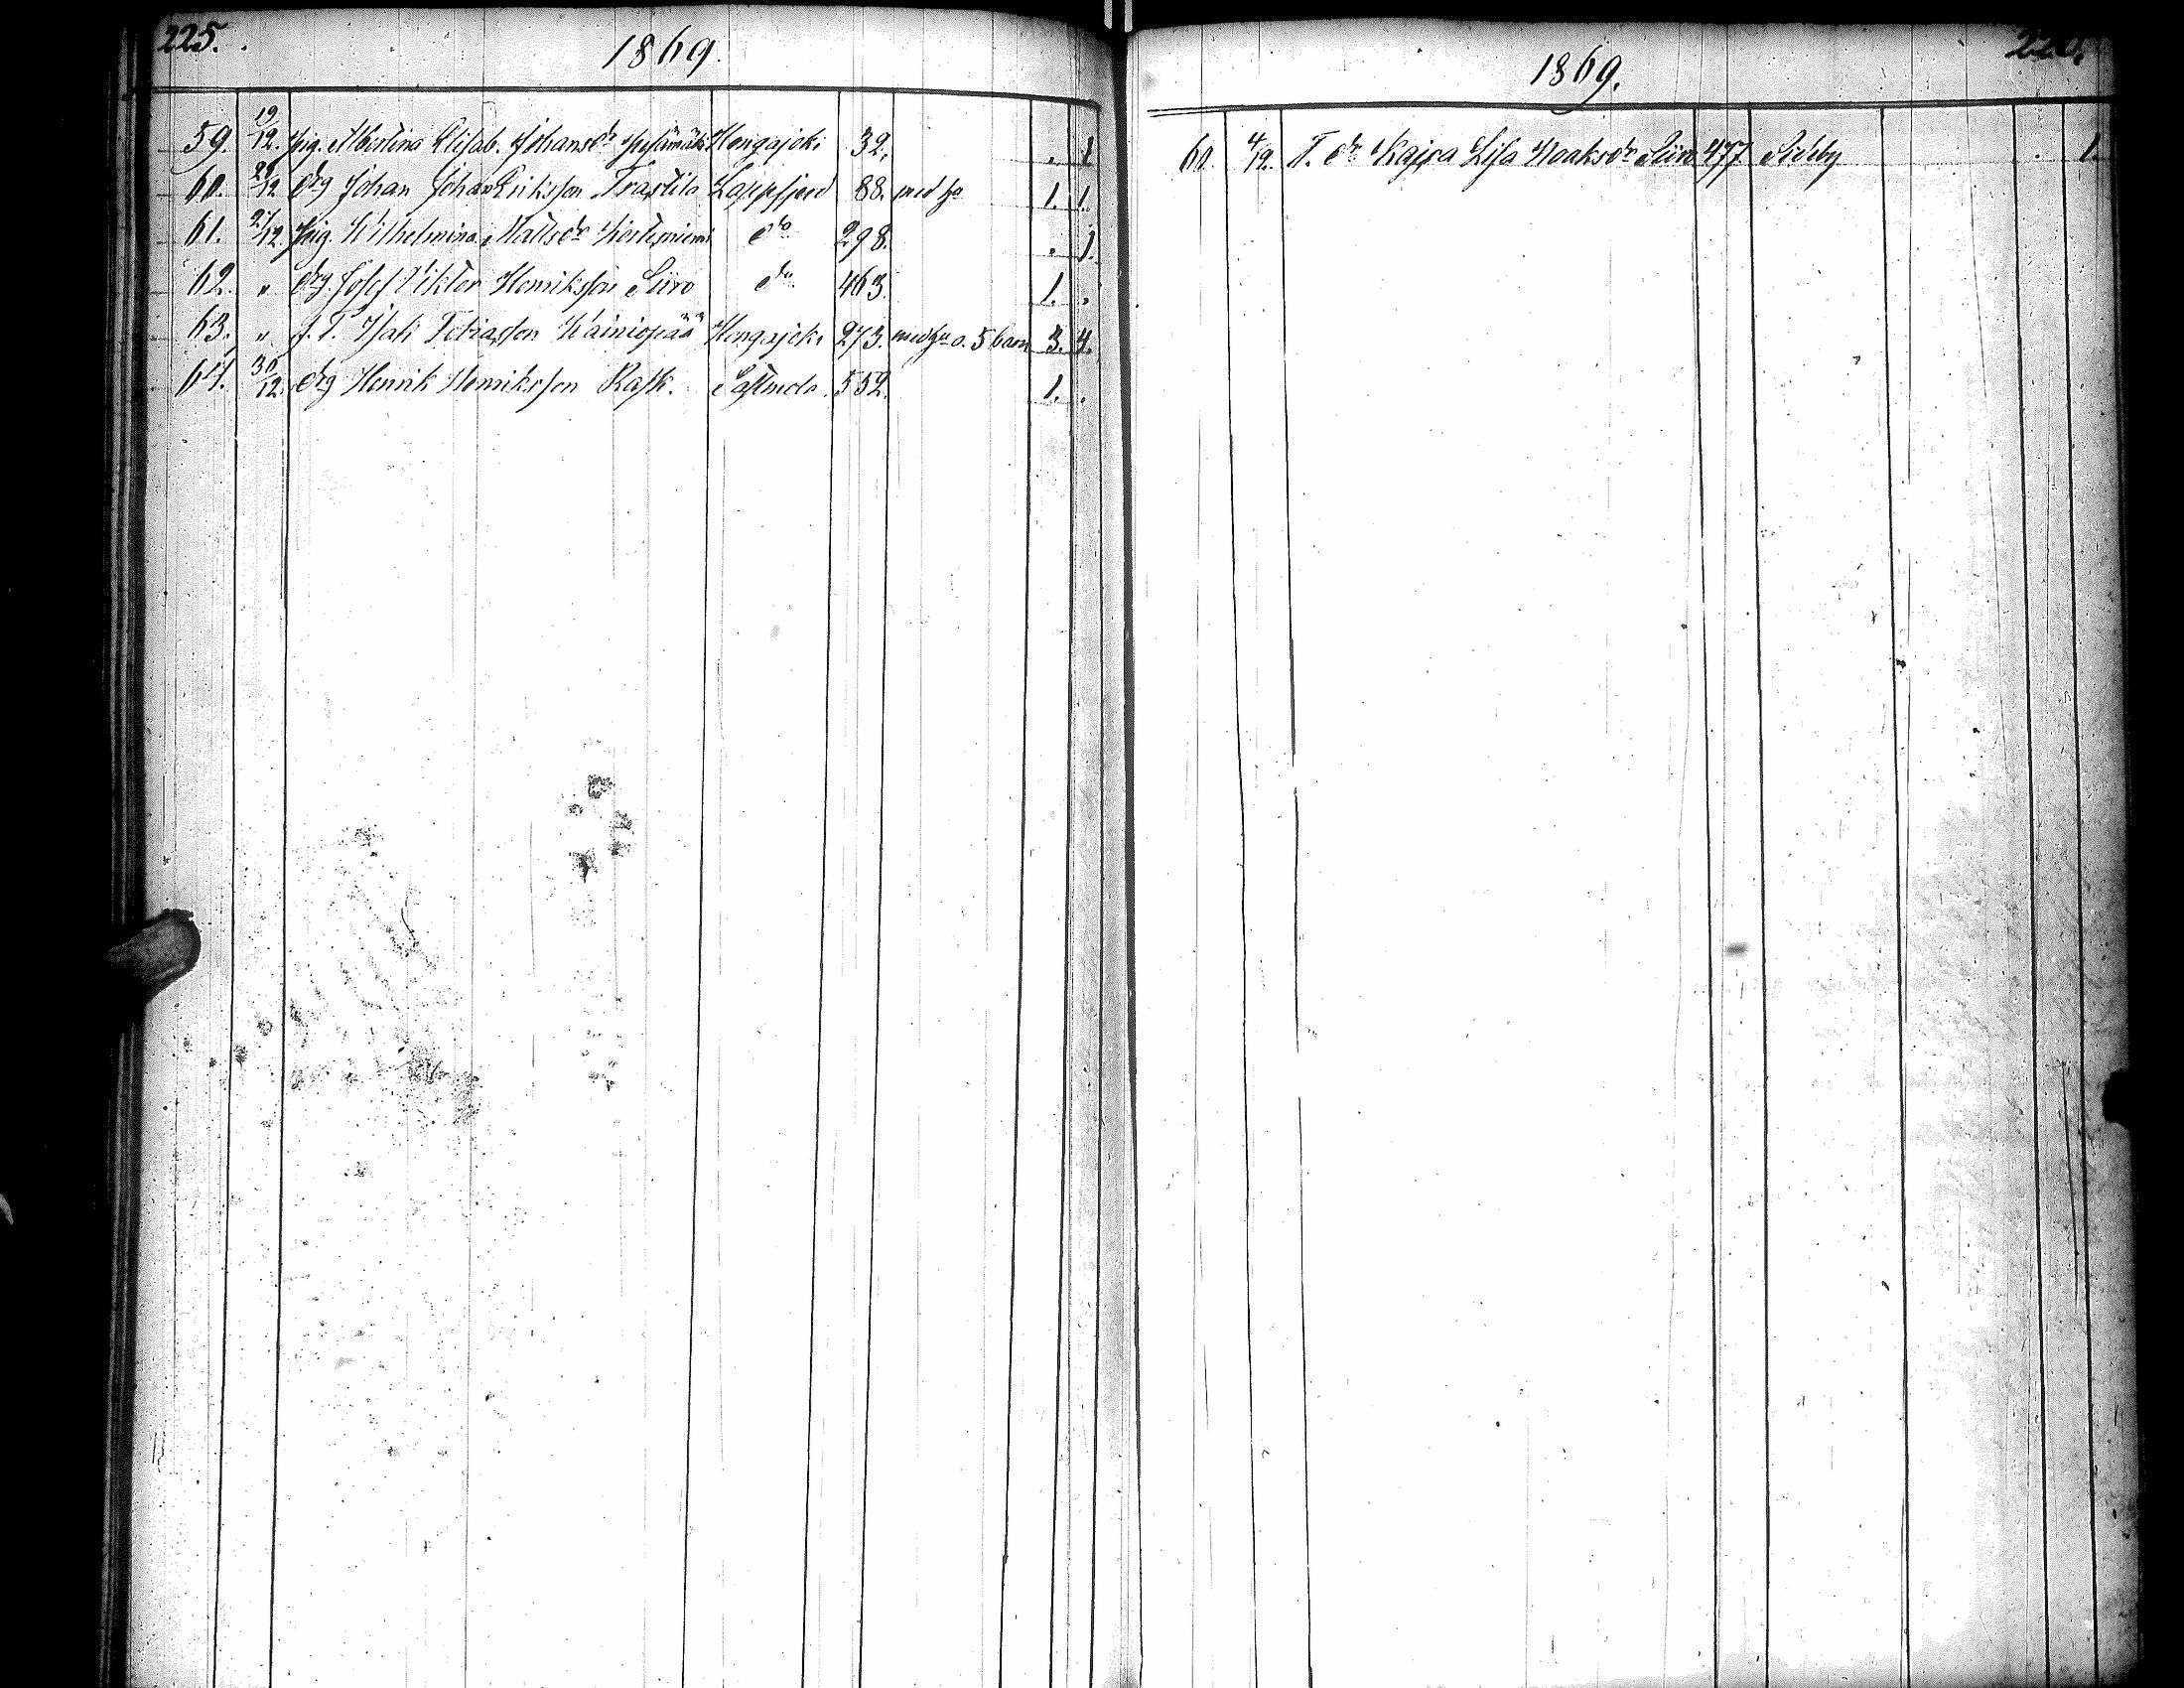 225.
1869.
59. 19/12. Pig. Albertina Elisab. Johansdr Hongajoki 32. . 1
60. 28/12 Drg Johan Johan Eriksson Trastila Lappfjerd 88. med hu 1. 1.
61. 29/12. Pig. Wilhelmina Mattsdr Koskiniemi do 298. . 1.
62. " Drg. Josef Viktor Henriksson Siiro do 463. 1. .
63. " f. T. Isak Tobiasson Wainiopää Hongajoki 273. med hu o. 5 barn 3. 4.
64. 30/12. Drg Henrik Henriksson Rask. Sastmola. 552. 1. .
226.
1869.
60. 4/12. T. dr. Kajsa Lisa Noaksdr Siiro 477 Sideby . 1.